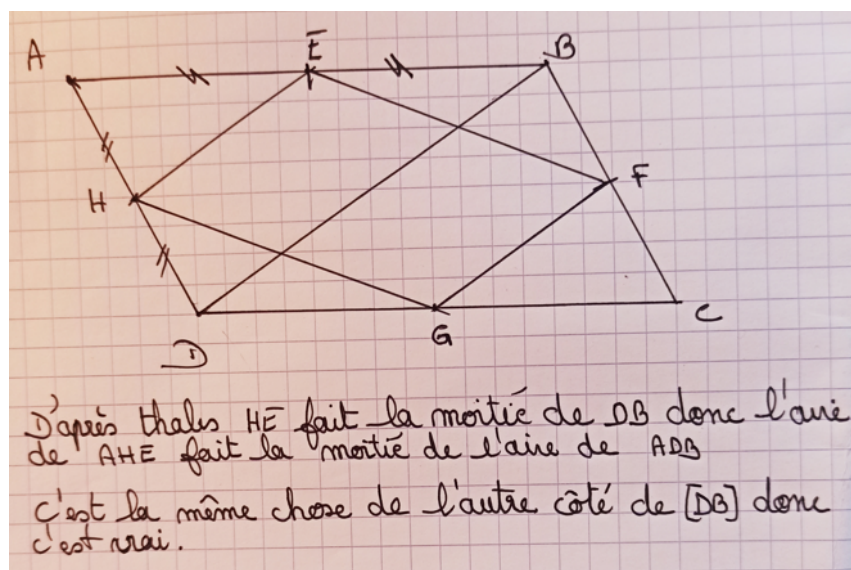 A
E
B
H
F
D
G
C
D'après thales HE fait la moitié de DB donc l'aire
de AHE fait la moitié de l'aire de ADB
c'est la même chose de l'autre côté de [DB] donc
c'est vrai.